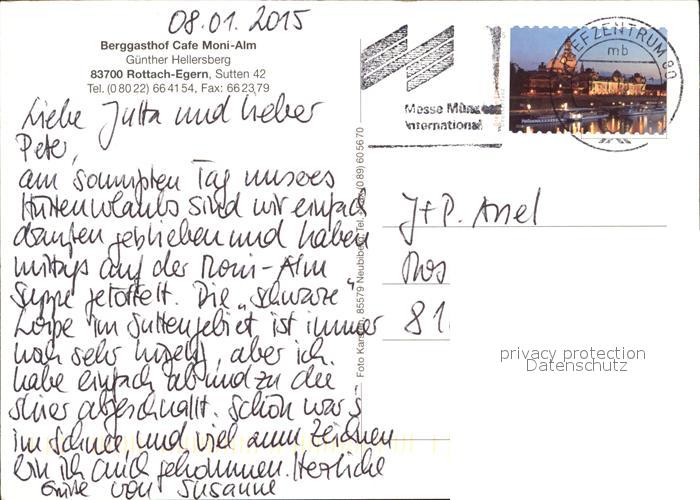 08.01.2015
Berggasthof Cafe Moni-Alm
Günther Hellersberg
83700 Rottach-Egern, Sutten 42
Tel. (0 80 22) 66 41 54, Fax: 66 23 79
Liebe Jutta und lieber
Peter,
am sonnigsten Tag unseres
Hüttenurlaubs sind wir einfach
draußen geblieben und haben
mittags auf der Moni-Alm
Suppe gelöffelt. Die „schwarze"
Loipe im Suttengebiet ist immer
noch sehr hügelig, aber ich
habe einfach ab und zu die
Skier abgeschnallt. Schön war's
im Schnee und viel zum Zeichnen
bin ich auch gekommen. Herzliche
Grüße von Susanne
Foto Karsten, 85579 Neubiberg, Tel. (0 89) 60 56 70
Messe München
International
BRIEFZENTRUM 80
mb
J+P.
Ros
81
privacy protection
Datenschutz